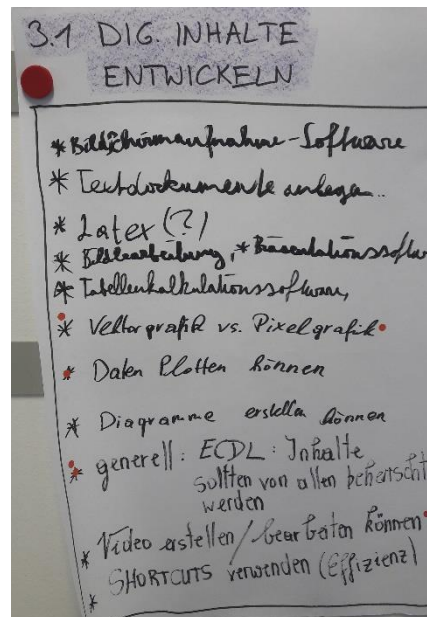 3.1 DIG. INHALTE
ENTWICKELN
* Bildschirmaufnahme-Software
* Textdokumente anlegen..
* Latex (?)
* Bildbearbeitung, * Präsentationssoftw
* Tabellenkalkulationssoftware,
* Vektorgrafik vs. Pixelgrafik
* Daten Plotten können
* Diagramme erstellen können
* generell: ECDL: Inhalte
sollten von allen beherrscht
werden
* Video erstellen/bearbeiten können
* SHORTCUTS verwenden (Effizienz)